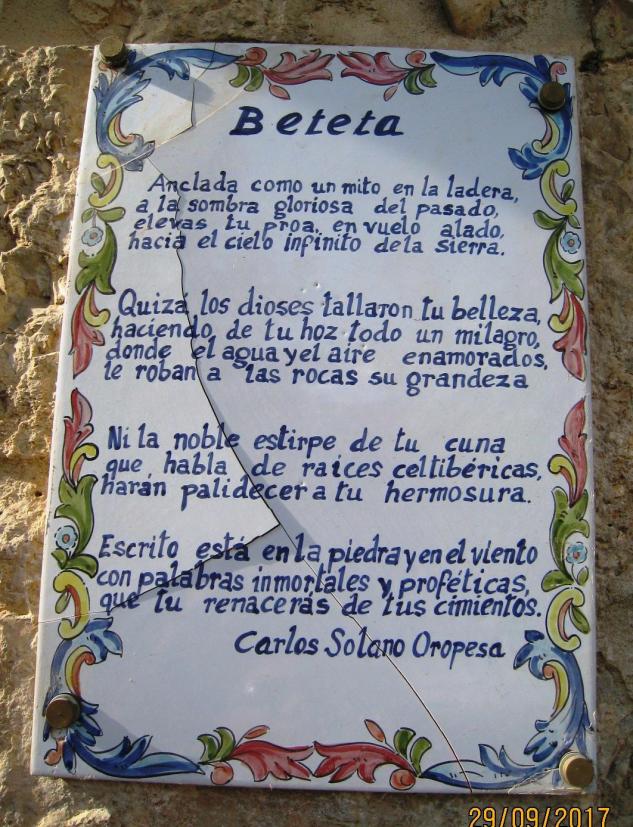 Beteta
Anclada como un mito en la ladera,
a la sombra gloriosa del pasado,
elevas tu proa, en vuelo alado,
hacia el cielo infinito de la sierra.
Quizá, los dioses tallaron tu belleza,
haciendo, de tu hoz todo un milagro,
donde el agua y el aire enamorados,
le roban a las rocas su grandeza
Ni la noble estirpe de tu cuna
que, habla de raíces celtibéricas,
harán palidecer a tu hermosura.
Escrito está en la piedra y en el viento
con palabras inmortales y proféticas,
que tu renacerás de tus cimientos.
Carlos Solano Oropesa
29/09/2017